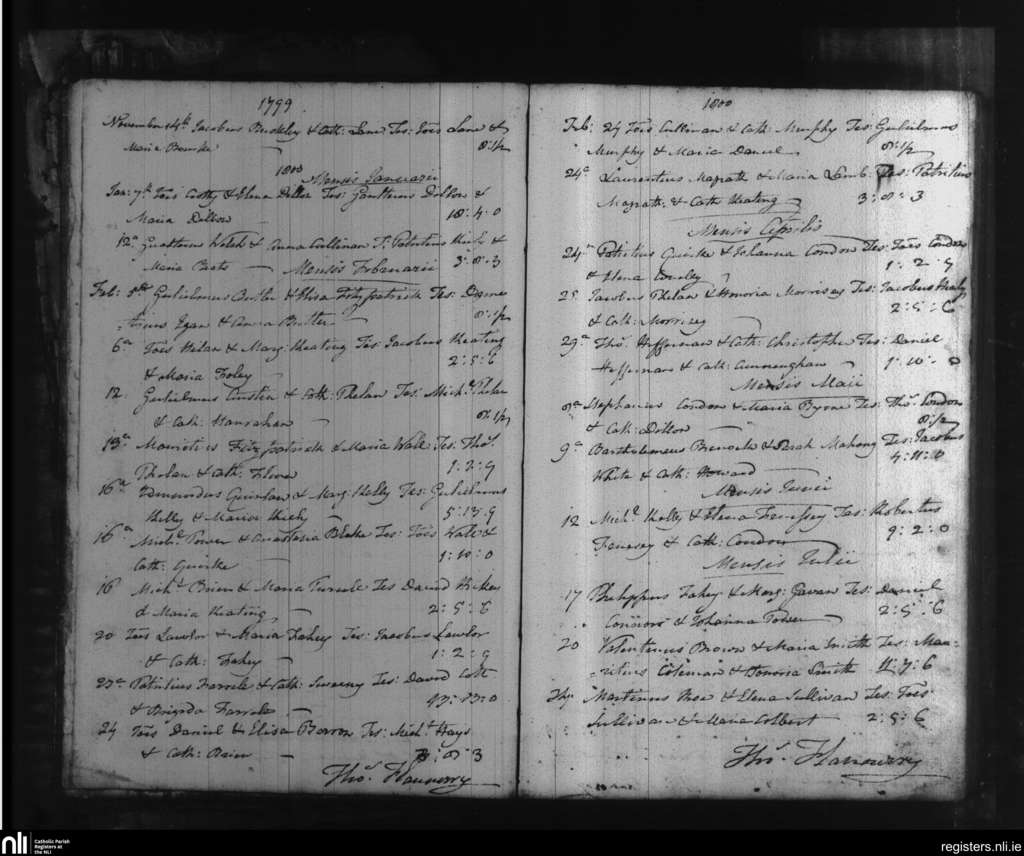 1799
November 14th Jacobus Buckley & Cath: Lane Tes: Tōes Lane &
Maria Bourke 8:1/2
1800
Mensis Januarii
Jan: 7th Tōes & Elena Dillon Tes: Gualterus Dillon &
Maria Dillon 10:4:0
12a Gualterus Walsh & Anna Cullinan T: Patritius &
Maria 3:8:3
Mensis Febuarii
Feb: 5th Gulielmus Butler & Elisa Fitzpatrick Tes: Deme
=trius Egan & Anna Butler 8:1/2
6a Tōes Helan & Marg: Keating Tes: Jacobus Keating
& Maria Foley 2:5:6
12 Gulielmus & Cath: Phelan Tes: Michl Phelan
& Cath: Hanrahan 8:1/2
13a Mauritius Fitzpatrick & Maria Wall Tes: Thos
Phelan & Cath: 1:2:9
16a Edmundus & Marg: Kelly Tes: Gulielmus
Kelly & Maria 5:13:9
16a Michl Power & Anastasia Blake Tes: Tōes Wall &
Cath: Quirke 1:10:0
16 Michl Brien & Maria Tes David Hickey
& Maria Keating 2:5:6
20 Tōes Lawlor & Maria Fahey Tes: Jacobus Lawlor
& Cath: Fahey 1:2:9
23a Patritius Farrele & Cath: Sweeny Tes: David
& Brigida Farrele 13:0
24 Tōes Daniel & Elisa Tes: Michl Hays
& Cath: Brien 3:8:3
Thos Flannery
1800
Feb: 24 Tōes Cullinan & Cath: Murphy Tes: Gulielmus
Murphy & Maria Daniel 8:1/2
24a Laurentius Magrath & Maria Lamb. Tes: Patritius
Magrath & Cath Keating 3:8:3
Mensis Aprilis
24a Patritius Quirke & Johanna Condon Tes: Tōes Condon
& Elena 1:2:9
25 Jacobus Phelan & Honoria Morrisey Tes: Jacobus Healy
& Cath: Morrisey 2:5:6
29a Thos Heffernan & Cath: Christopher Tes: Daniel
Heffernan & Cath: Cunningham 1:10:0
Mensis Maii
8a Stephanus Condon & Maria Byrne Tes: Thos Condon
& Cath: Dillon 8:1/2
9a Bartholomeus & Mahony Tes: Jacobus
White & Cath: Howard 4:11:0
Mensis Junii
12 Michl Kelly & Elena Fennessy Tes: Robertus
& Cath: Condon 9:2:0
Mensis Julii
17 Philippus Fahey & Marg: Gavan Tes: Daniel
Connors & Johanna Power 2:5:6
20 Valentinus Brown & Maria Smith Tes: Mau=
=ritius Coleman & Honoria Smith 11:7:6
Martinus & Elena Sullivan Tes: Tōes
Sullivan & Maria Colbert 2:5:6
Thos Flannery
nli
Catholic Parish
Registers at
the NLI
registers.nli.ie